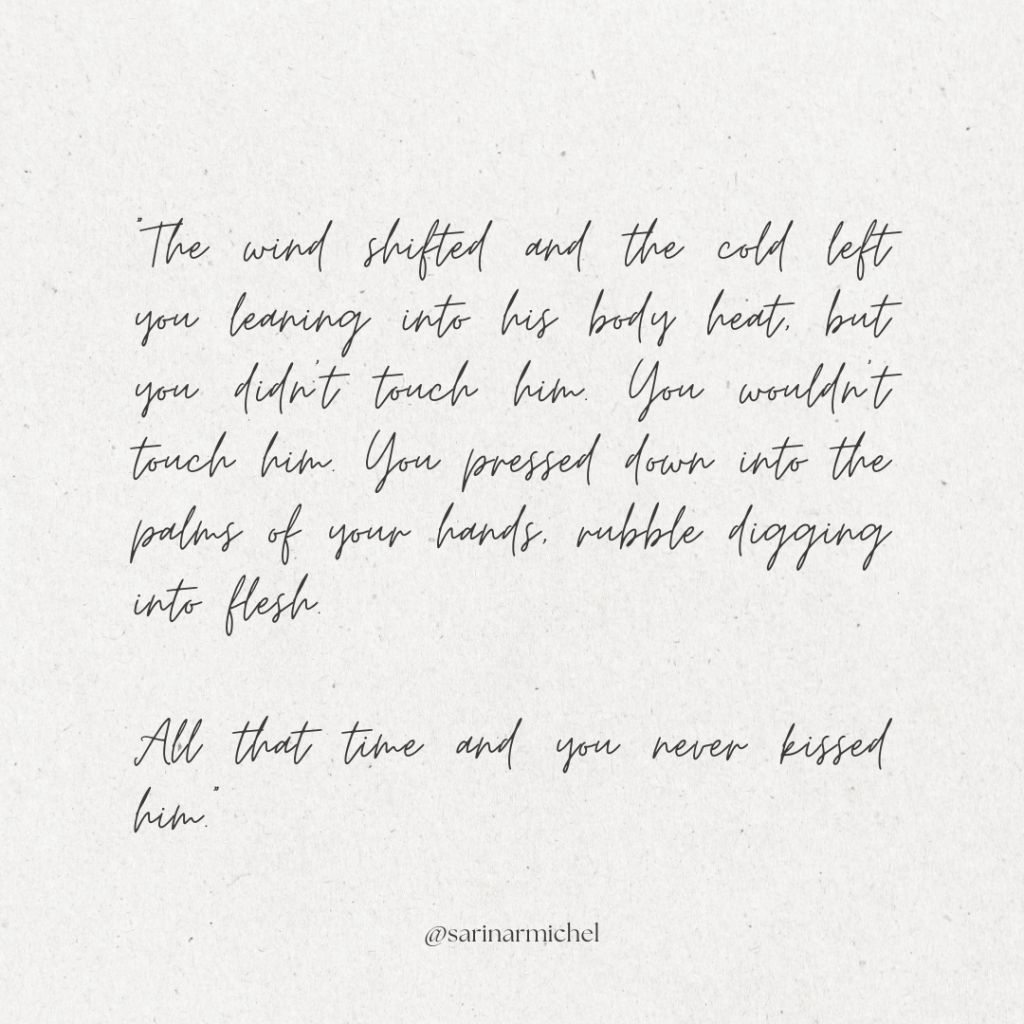 "The wind shifted and the cold left
you leaning into his body heat, but
you didn't touch him. You wouldn't
touch him. You pressed down into the
palms of your hands, rubble digging
into flesh.
All that time and you never kissed
him."
@sarinarmichel